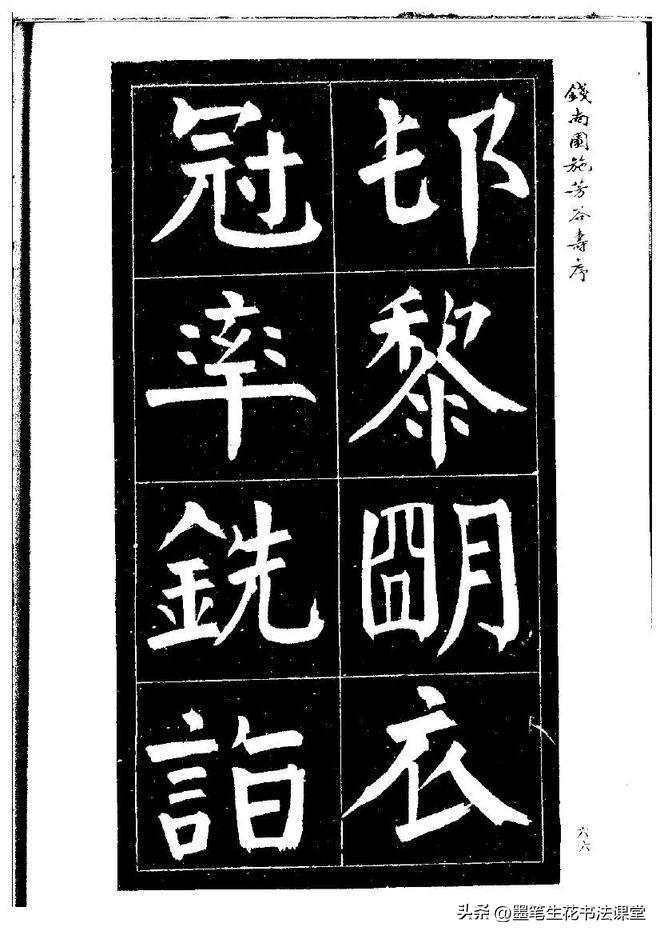 錢南園施芳谷壽序
邨黎朙衣
冠率銑詣
六六
头条 @墨笔生花书法课堂